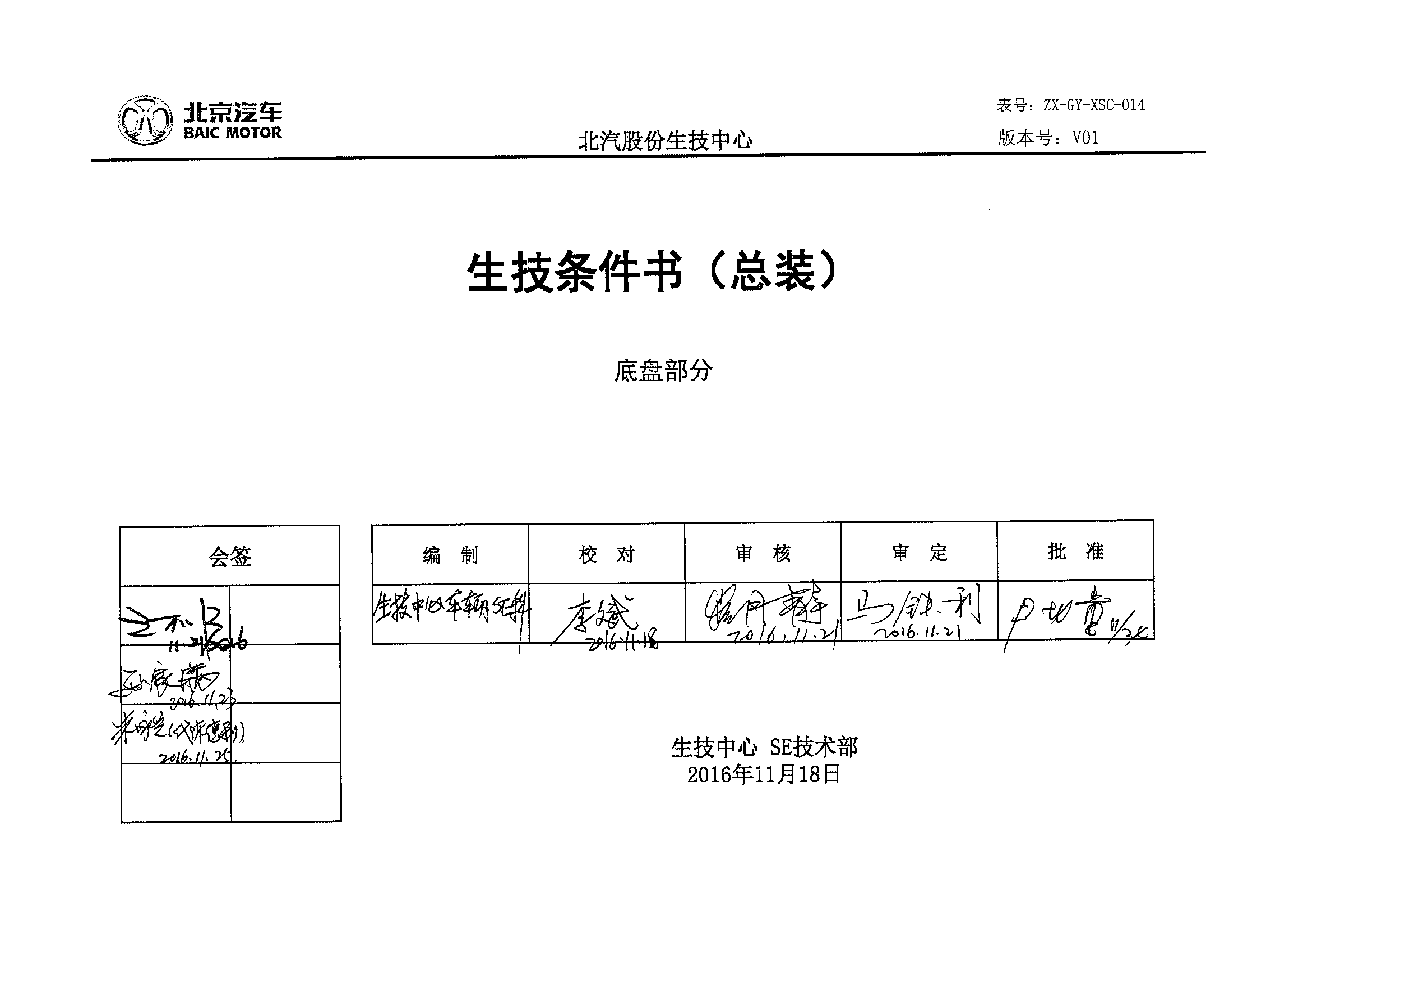 北京汽车
BAIC MOTOR
北汽股份生技中心
表号：ZX-GY-XSC-014
版本号：V01
生技条件书（总装）
底盘部分
会签
编 制 校 对 审 核 审 定 批 准
生技中心车辆SE科 李文斌 马铁利
2016.11.18 2016.11.21 2016.11.21
2016.11.23
2016.11.25
生技中心 SE技术部
2016年11月18日